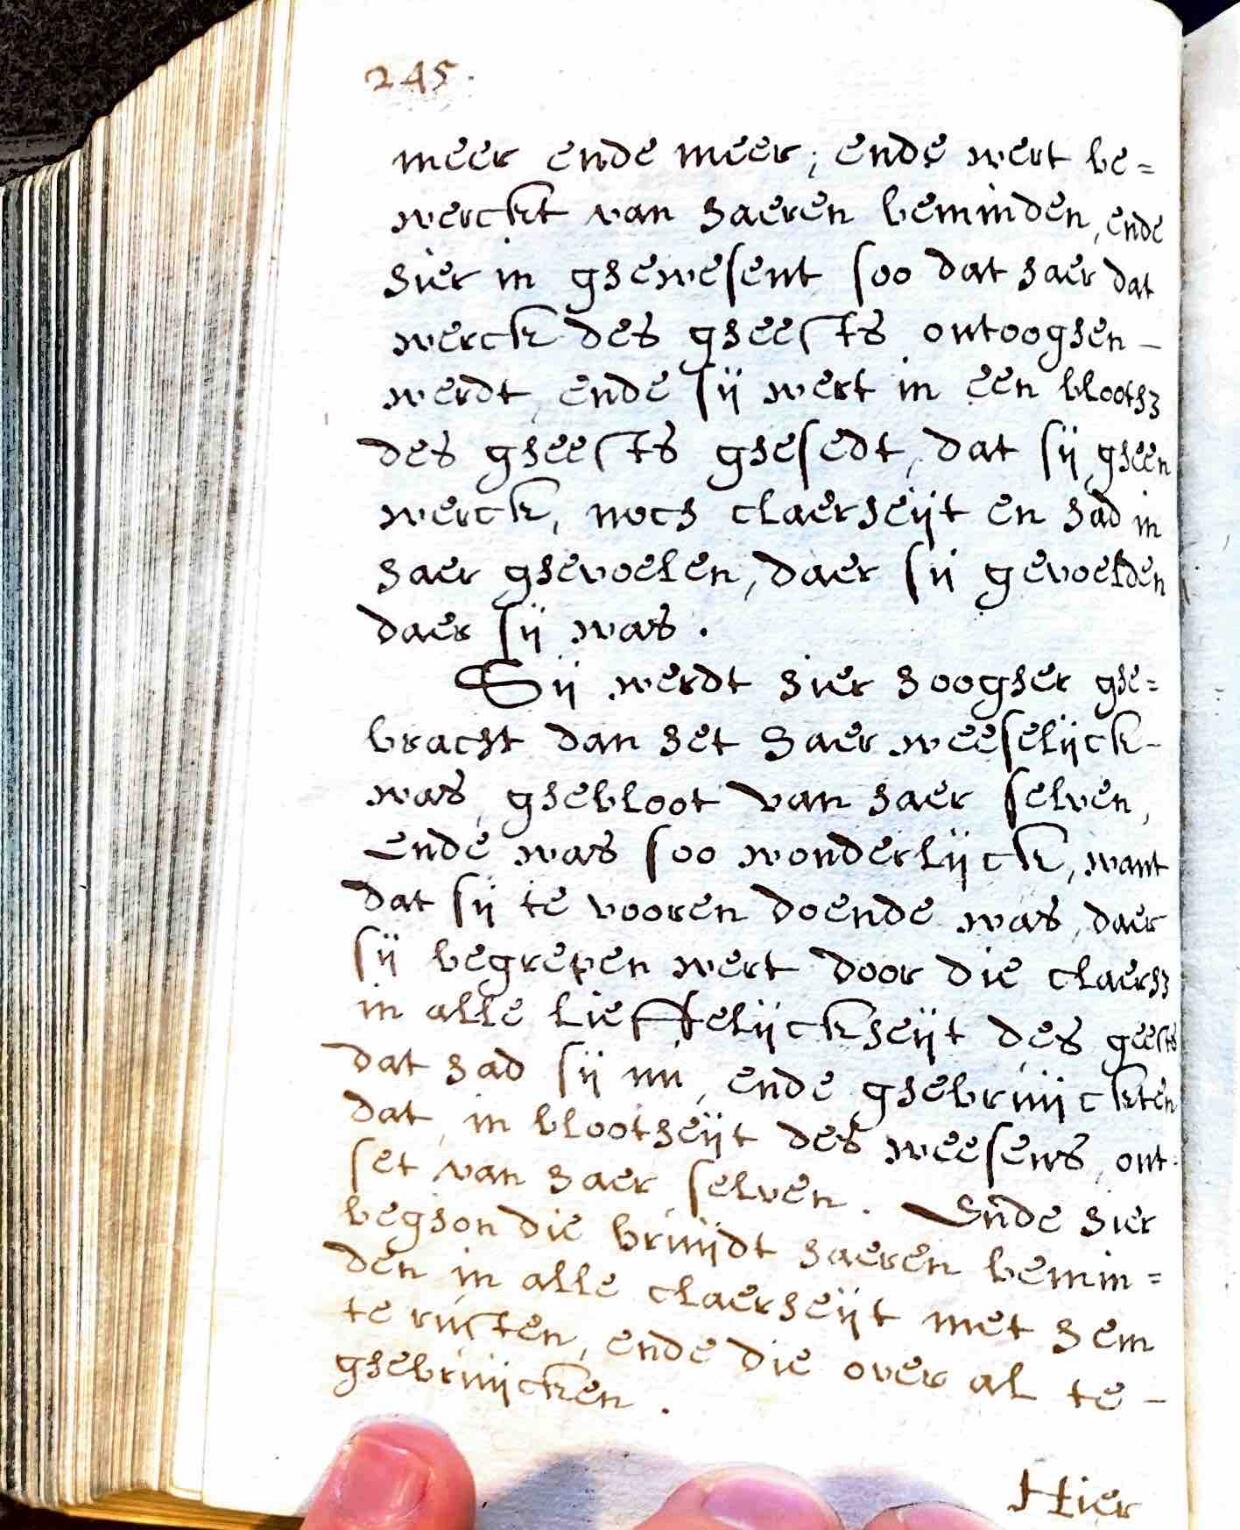 245.
meer ende meer; ende wert be=
werckt van haeren beminden, ende
hier in ghewesent soo dat haer dat
werck des gheests ontooghen -
werdt, ende sij wert in een blooth3
des gheests ghesedt, dat sij gheen
werck, noch claerheijt en had in
haer ghevoelen, daer sij gevoelden
daer sij was.
Sij werdt hier hoogher ghe=
bracht dan het haer weeselijck -
was, ghebloot van haer selven,
Ende was soo wonderlijck, want
dat sij te vooren doende was, daer
sij begrepen wert door die claerh3
in alle lieffelijckheijt des geests
dat had sij nu, ende ghebruijckten
dat, in blootheijt des weesens, ont-
set van haer selven. Ende hier
beghon die bruijdt haeren bemin=
den in alle claerheijt met hem
te rusten, ende die over al te -
ghebruijcken.
Hier